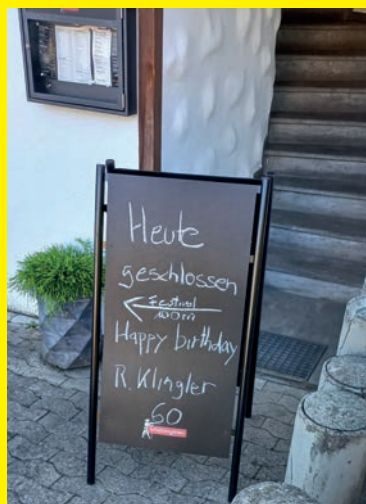 Heute
geschlossen
Festival
100m
Happy birthday
R. Klingler
60